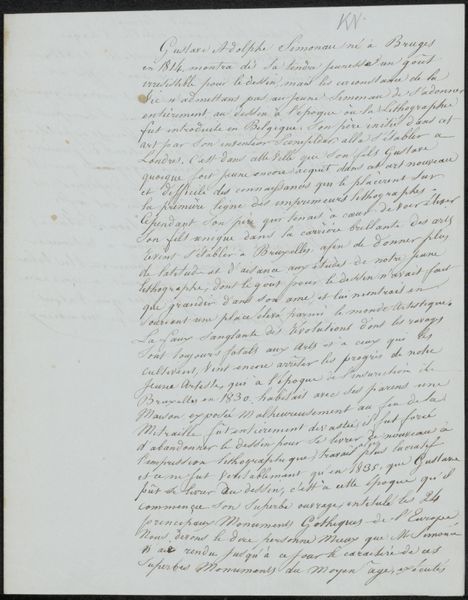 KN.
Gustave Adolphe Simonau né à Bruges
en 1814, montra dès sa tendre jeunesse un goût
irrésistible pour le dessin, mais les circonstances de la
vie n'admettant pas au jeune Simonau de s'adonner
entièrement au dessin, à l'époque où la Lithographie
fut introduite en Belgique. Son père initié dans cet
art par son alla s'établir à
Londres. C'est dans cette Ville que son fils Gustave
quoique fort jeune encore acquit dans cet art nouveau
et difficile des connaissances qui le placèrent sur
la première ligne des imprimeurs lithographes.
Cependant son père qui tenait à cœur de voir élever
son fils unique dans la carrière brillante des arts
revint s'établir à Bruxelles, afin de donner plus
de latitude et d'aisance aux études de notre jeune
lithographe, dont le goût pour le dessin n'avait fait
que grandir dans son âme, et lui montrait en
souriant une place élevé parmi le monde Artistique.
La Faux Sanglante des Révolutions dont les ravages
sont toujours fatals aux Arts et à ceux qui les
cultivent, vint encore arrêter les progrès de notre
jeune Artiste, qui à l'époque de l'insurrection de
Bruxelles en 1830, habitait avec ses parens une
Maison exposée Malheureusement au feu de la
Mitraille fut entièrement devastée, il fut forcé
d'abandonner le dessin pour se livrer de nouveau à
l'impression lithographique travail plus lucratif
et ce ne fut veritablement qu'en 1835, que Gustave
pût se livrer au dessin, c'est à cette époque qu'il
commença son Superbe ouvrage, intitulé les 24
principaux Monuments Gothiques de l'Europe
Nous devons le dire personne Mieux que Mr Simonau
n'a rendu jusqu'à ce jour le caractère de ces
Superbes Monuments du Moyen âge, exécutés